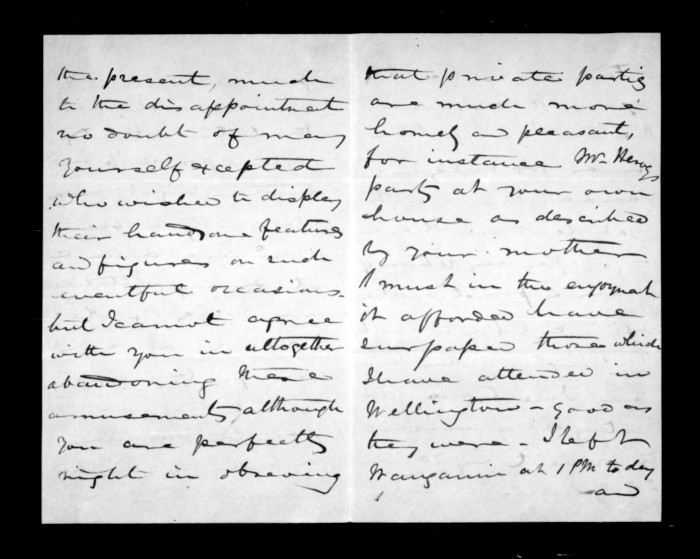 the present, much
to the disappointment
no doubt of many
yourself excepted
who wished to display
their handsome features
and figures on such
eventful occasions.
but I cannot agree
with you in altogether
abandoning these
amusements although
you are perfectly
right in observing
that private parties
are much more
homely and pleasant,
for instance Mr Henry's
party at your own
house as described
by your mother
must in the enjoyment
it afforded have
surpassed those which
I have attended in
Wellington - good as
they were - I left
Wanganui at 1 PM to day
and